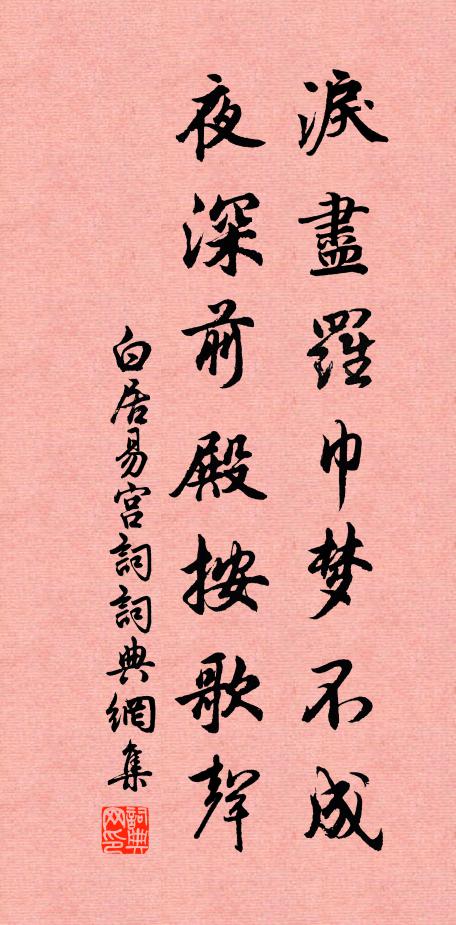 淚盡羅巾梦不成
夜深前殿按歌聲
白居易宮詞詞典網集
詞典网印